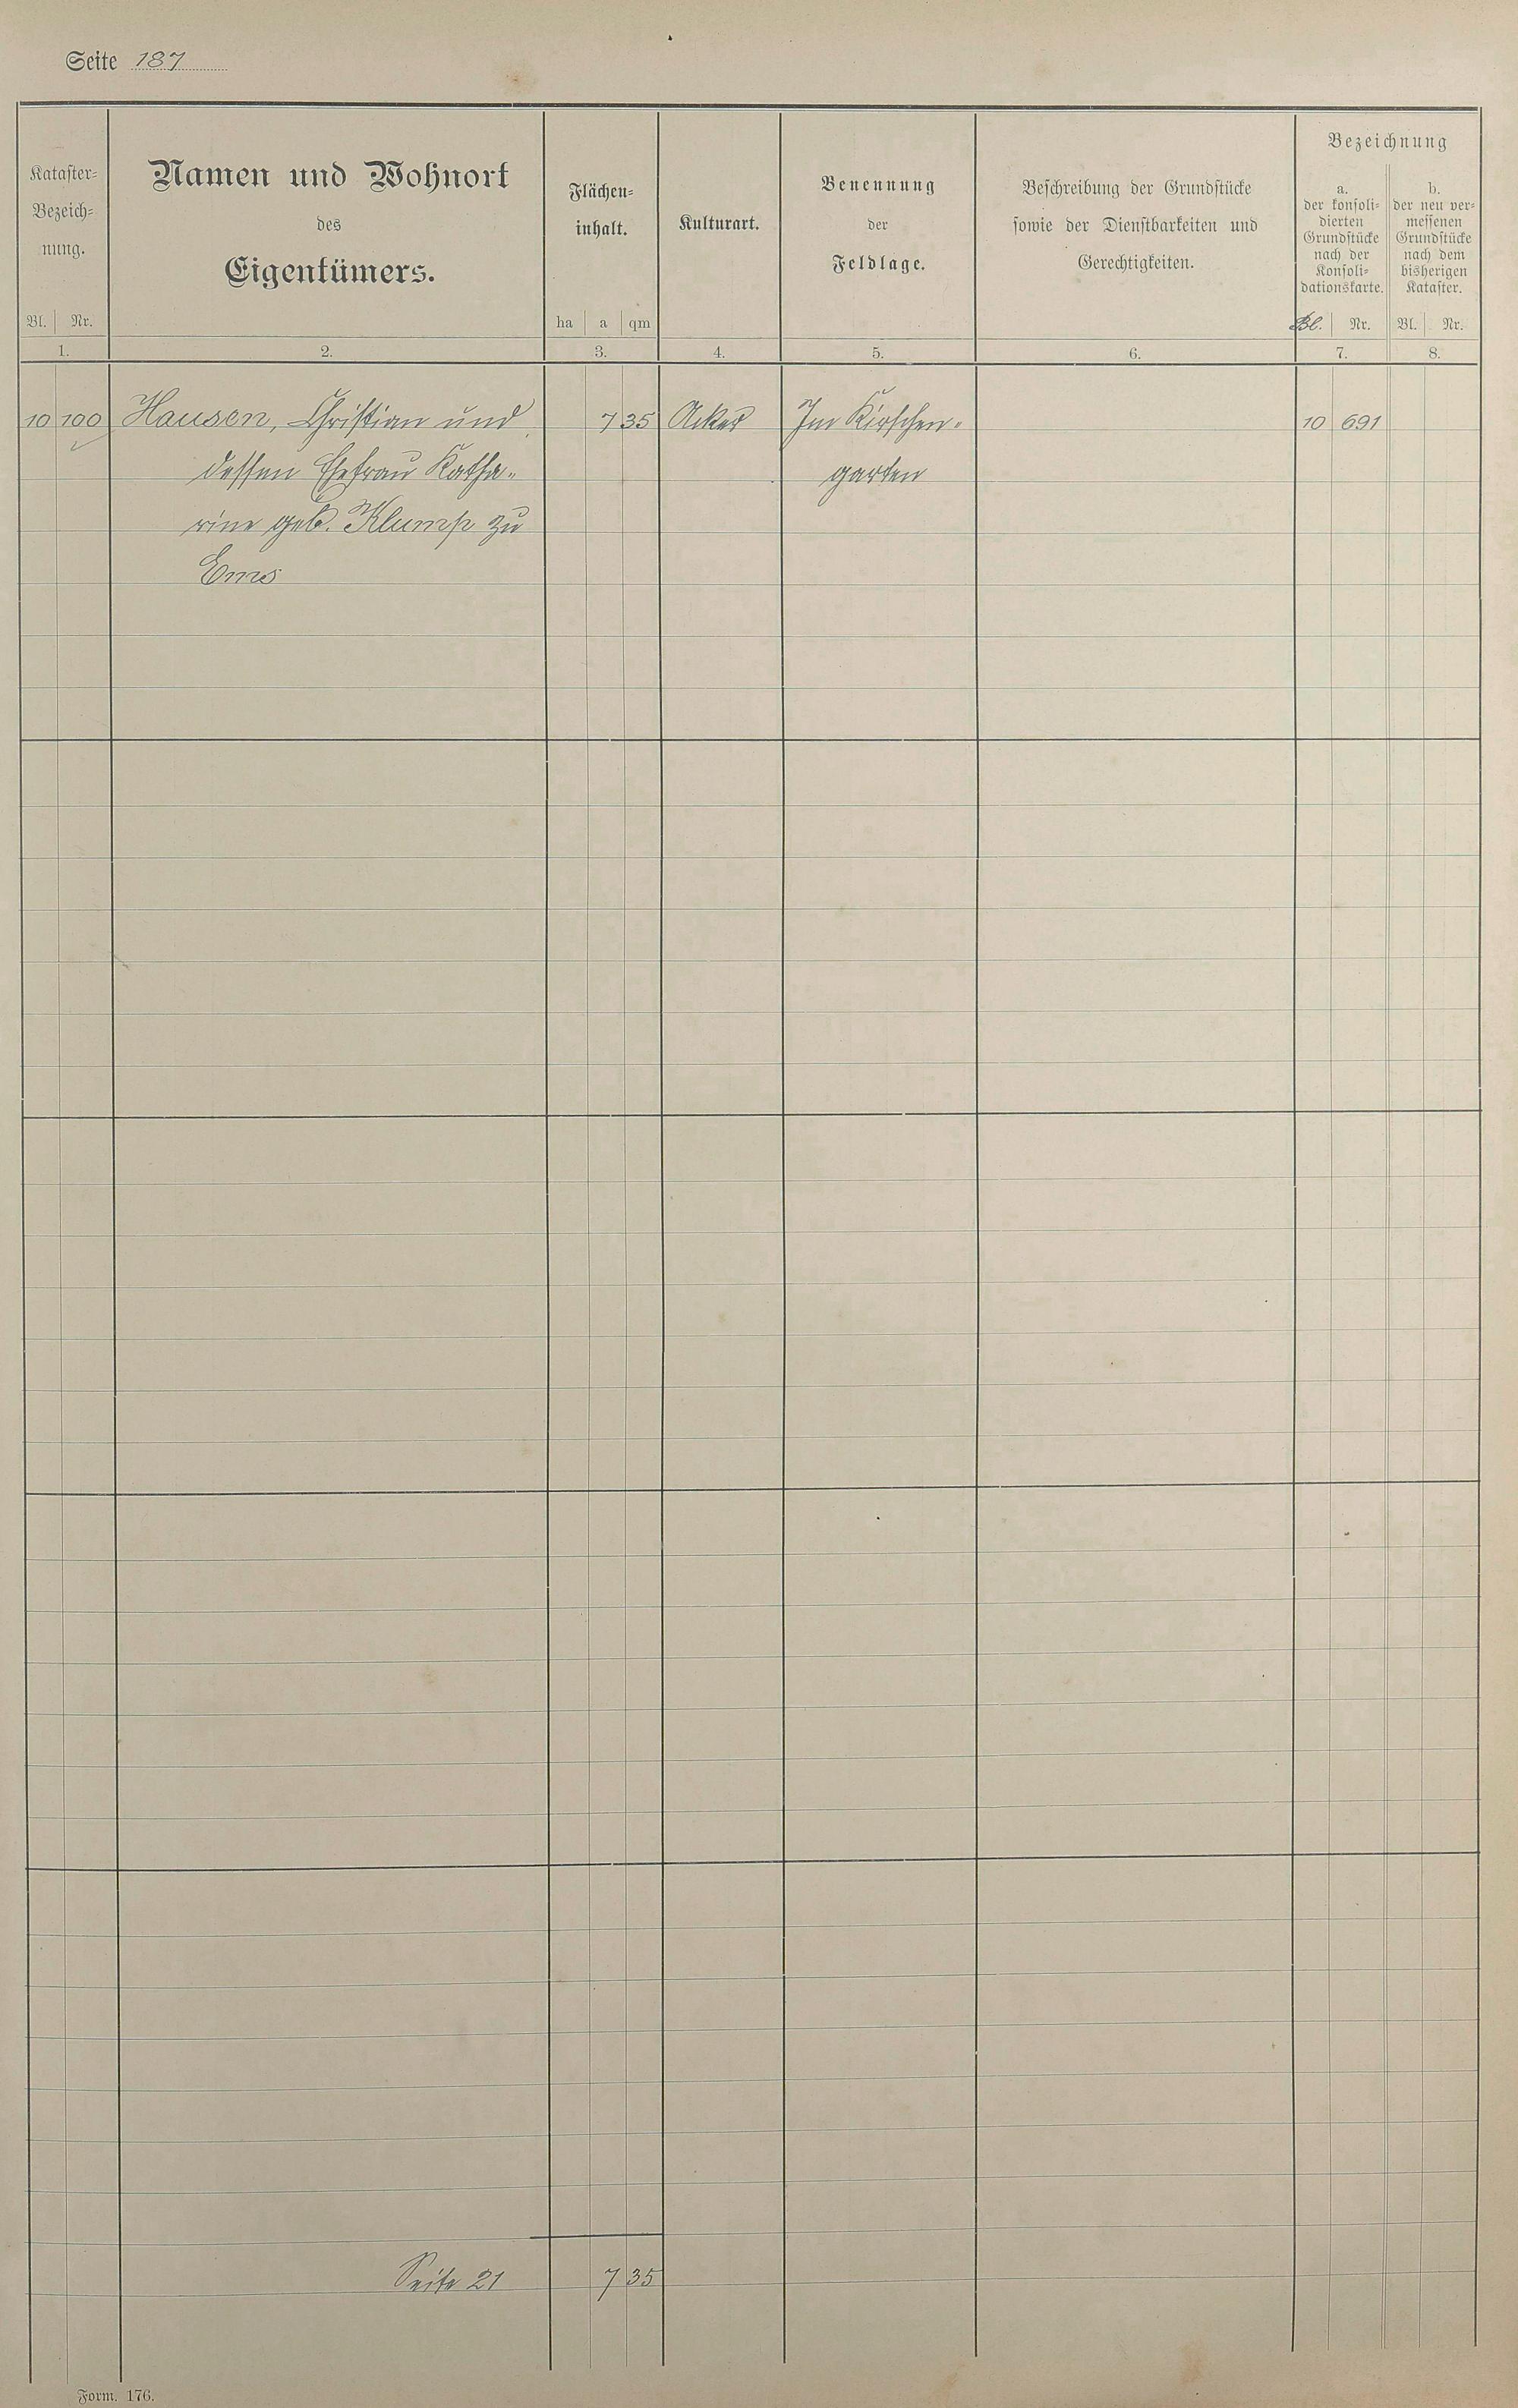 Seite 187
Kataster-
Bezeich-
nung.
Bl. Nr.
1.
Namen und Wohnort
des
Eigentümers.
2.
Flächen-
inhalt.
ha a qm
3.
Kulturart.
4.
Benennung
der
Feldlage.
5.
Beschreibung der Grundstücke
sowie der Dienstbarkeiten und
Gerechtigkeiten.
6.
Bezeichnung
a.
der konsoli-
dierten
Grundstücke
nach der
Konsoli-
dationskarte.
Bl. Nr.
7.
b.
der neu ver-
messenen
Grundstücke
nach dem
bisherigen
Kataster.
Bl. Nr.
8.
10 100 Hausen, Christian und 7 35 Acker Im Kirschen- 10 691
dessen Ehefrau Katha- garten
rine geb. Klump zu
Ems
Seite 21 7 35
Form. 176.